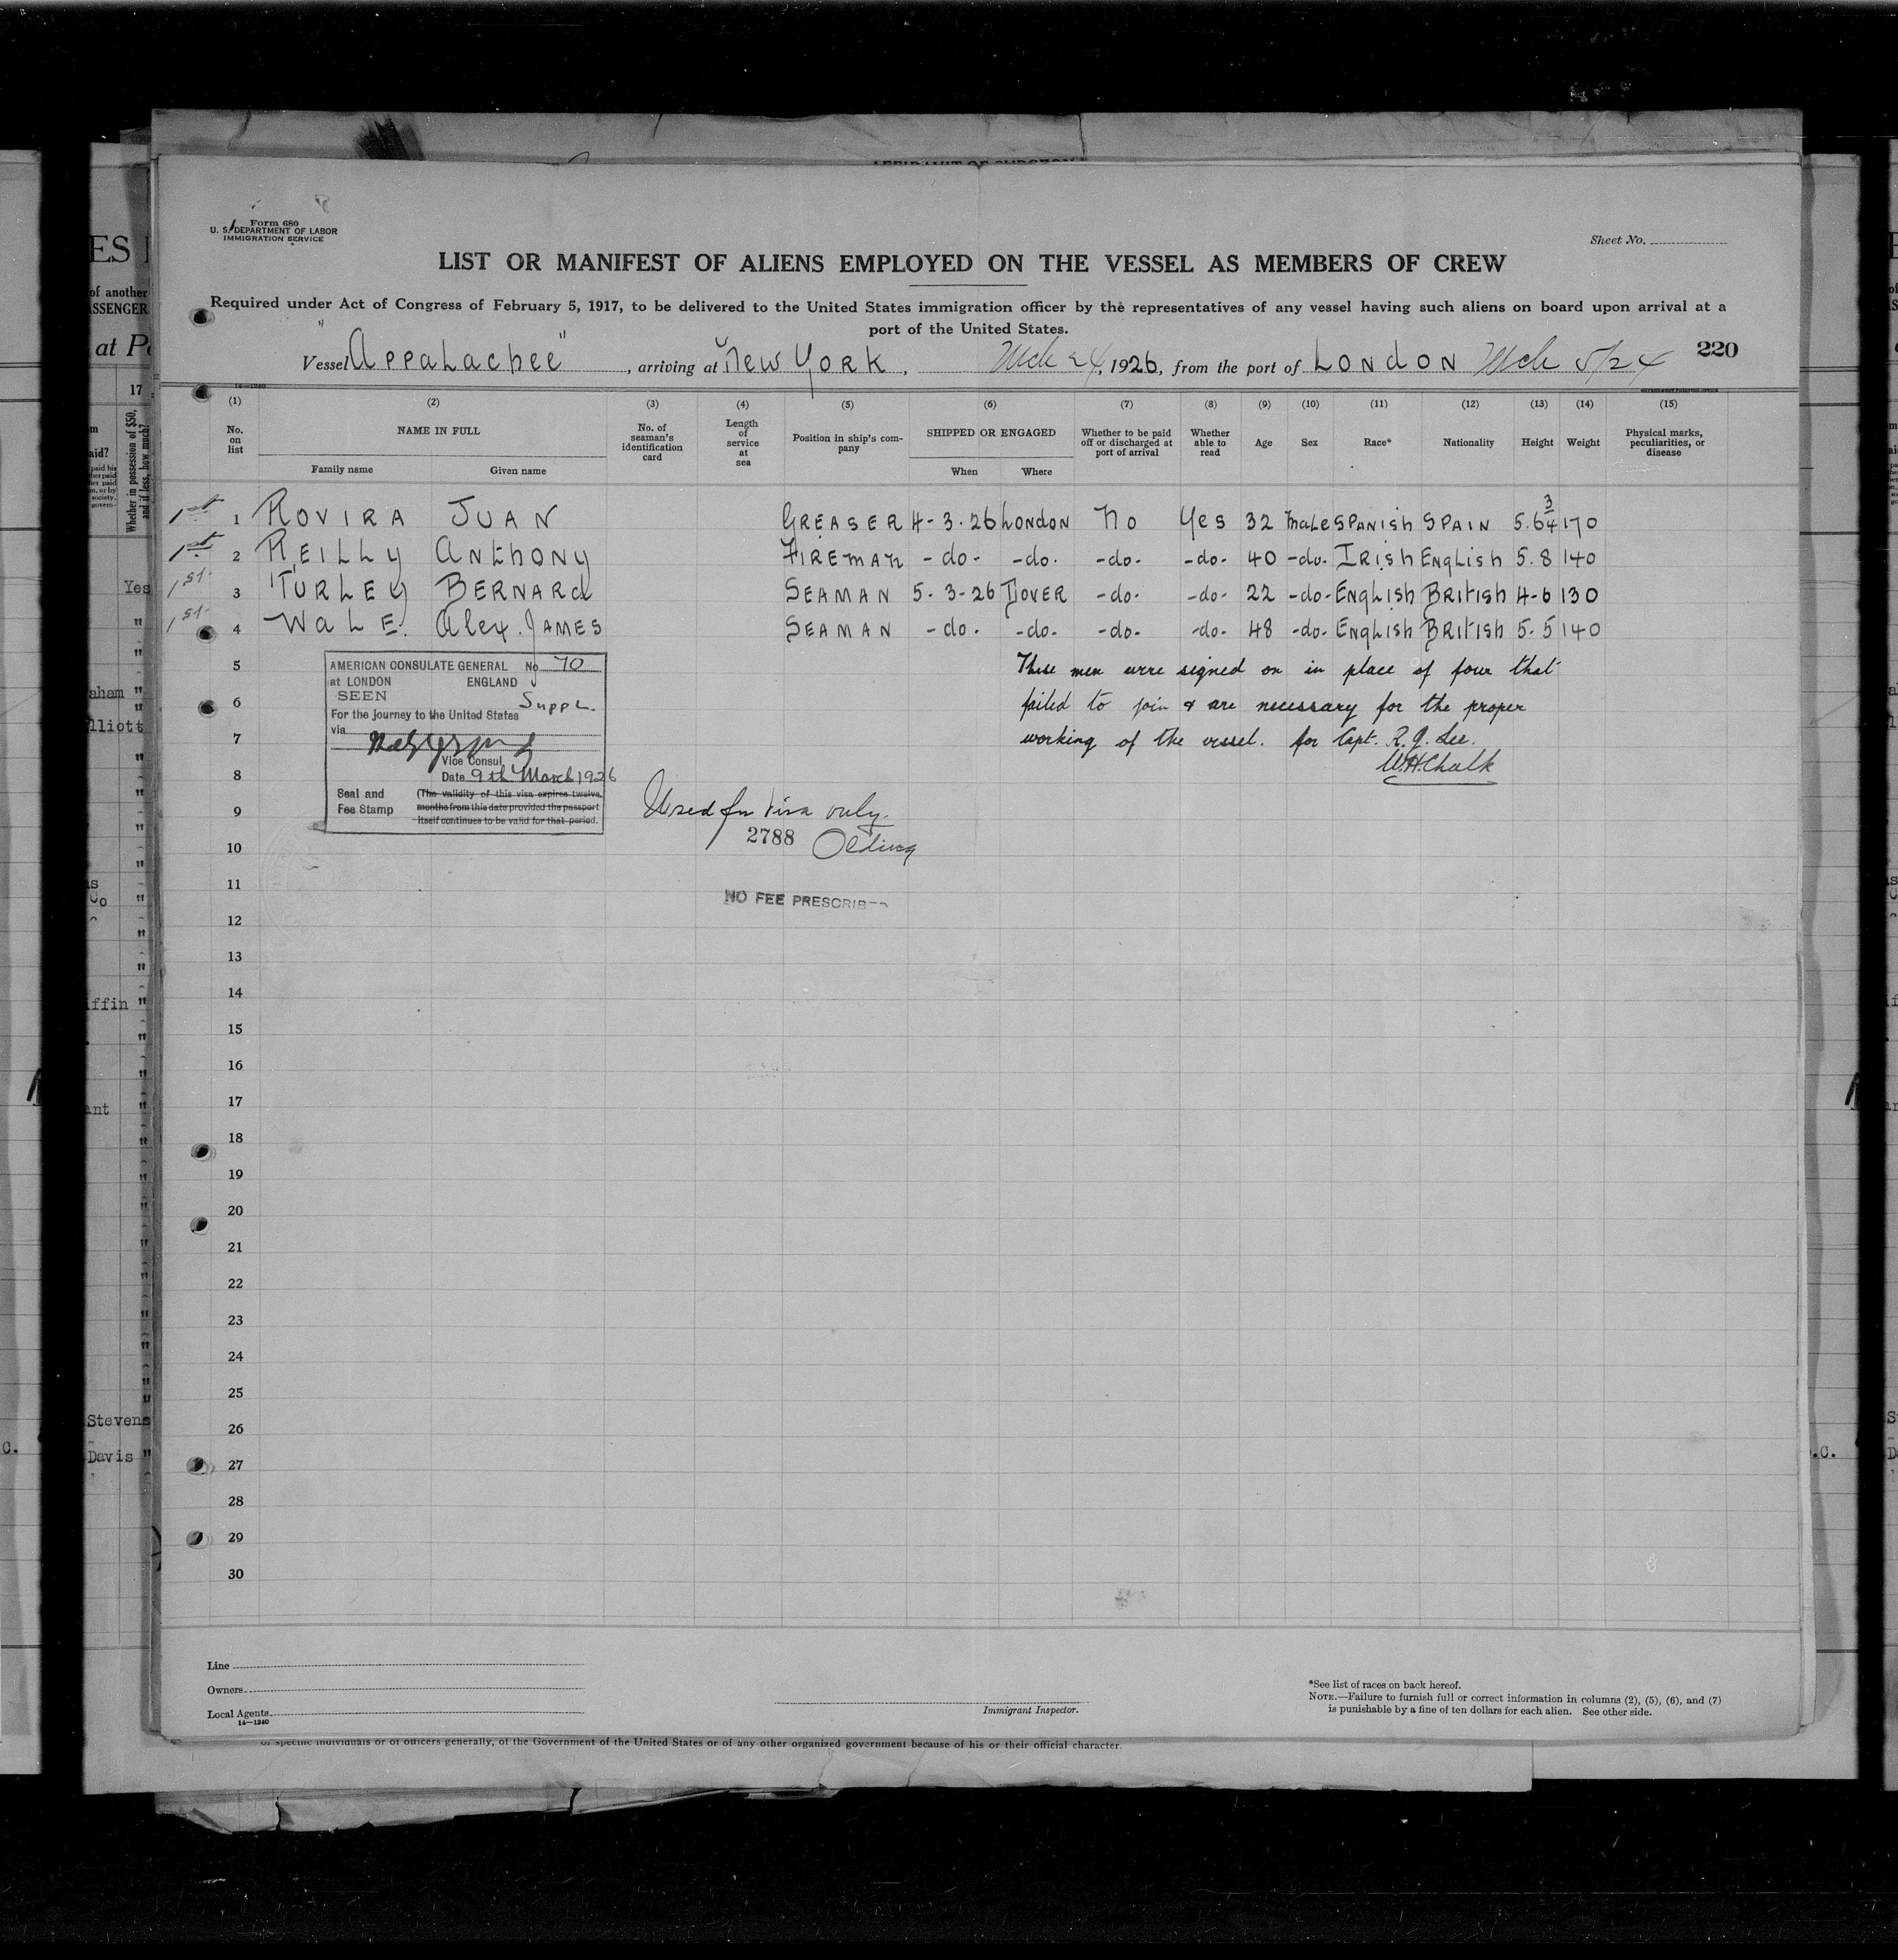 Form 680
U. S. DEPARTMENT OF LABOR
IMMIGRATION SERVICE
Sheet No.
LIST OR MANIFEST OF ALIENS EMPLOYED ON THE VESSEL AS MEMBERS OF CREW
Required under Act of Congress of February 5, 1917, to be delivered to the United States immigration officer by the representatives of any vessel having such aliens on board upon arrival at a
port of the United States.
Vessel "Appalachee", arriving at New York, Mch 24, 1926, from the port of London Mch 5/24
220
(1) (2) (3) (4) (5) (6) (7) (8) (9) (10) (11) (12) (13) (14) (15)
No. on list NAME IN FULL No. of seaman's identification card Length of service at sea Position in ship's company SHIPPED OR ENGAGED Whether to be paid off or discharged at port of arrival Whether able to read Age Sex Race* Nationality Height Weight Physical marks, peculiarities, or disease
Family name Given name When Where
1st 1 ROVIRA JUAN GREASER 4-3-26 London No Yes 32 Male SPANISH SPAIN 5.6 3/4 170
1st 2 REILLY ANTHONY FIREMAN -do- -do- -do- -do- 40 -do- IRISH ENGLISH 5.8 140
1st 3 TURLEY BERNARD SEAMAN 5-3-26 DOVER -do- -do- 22 -do- ENGLISH BRITISH 4-6 130
1st 4 WALE. Alex. JAMES SEAMAN -do- -do- -do- -do- 48 -do- ENGLISH BRITISH 5.5 140
5
These men were signed on in place of four that
6
failed to join & are necessary for the proper
7
working of the vessel. for Capt. R. J. Lee.
W.H.Chalk
AMERICAN CONSULATE GENERAL No 70
at LONDON ENGLAND
SEEN Suppl.
For the journey to the United States
via
Vice Consul
Date 9th March 1926
Seal and Fee Stamp
(The validity of this visa expires twelve
months from this date provided the passport
itself continues to be valid for that period.
8
9
Used for visa only.
2788
10
11
NO FEE PRESCRIB
12
13
14
15
16
17
18
19
20
21
22
23
24
25
26
27
28
29
30
Line
Owners
Local Agents
14—1240
Immigrant Inspector.
*See list of races on back hereof.
NOTE.—Failure to furnish full or correct information in columns (2), (5), (6), and (7)
is punishable by a fine of ten dollars for each alien. See other side.
of specific individuals or of officers generally, of the Government of the United States or of any other organized government because of his or their official character.
ES
of another
ASSENGER
at
17
Whether in possession of $50, and if less, how much?
Yes
aham "
lliott
iffin "
ant "
Stevens
Davis "
C.